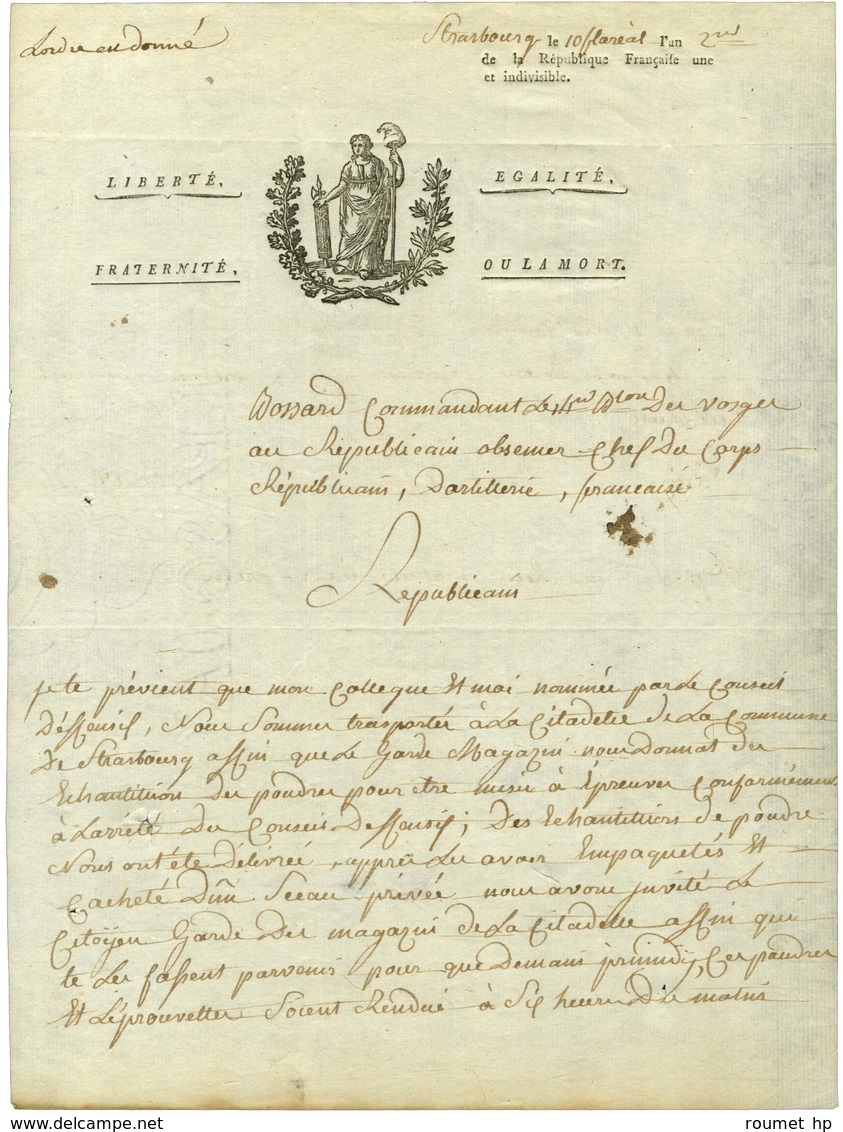 Lordre en donné
Strasbourg le 10 floréal l'an 2me
de la République Françaiſe une
et indiviſible.
LIBERTÉ,
EGALITÉ,
FRATERNITÉ,
OU LA MORT.
Bossard Commandant Le 4me Blon Des vosges
au Républicain obsemer Chef Du Corps
Républicain, Dartillerie, francaise
Republicain
je te prévient que mon Collegue Et moi nommée par Le Conseil
Déffensif, Nous Sommes trasportés à La Citadelle de La Commune
De Strasbourg affin que Le Garde Magazin nous Donnat des
Echantition Des poudres pour être misse à Epreuves Conformément
à Larrêté Du Conseil Deffensif; Des Echantitions de poudre
Nous ont été Délivrée, apprés Les avoir Empaquetés Et
Cacheté D'un Sceau privée nous avons jnvité Le
Citoÿen Garde Des magazin de La Citadelle affin qui
te Les fassent parvenir pour que Demain primidy, Ces poudres
Et L'éprouvettes Soient Rendue à Six heures Du matin
roumet hp